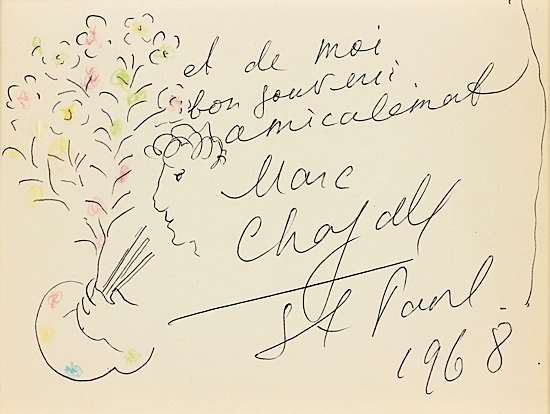 et de moi
bon souveni
amicalemat
Marc
Chagall
St Paul.
1968